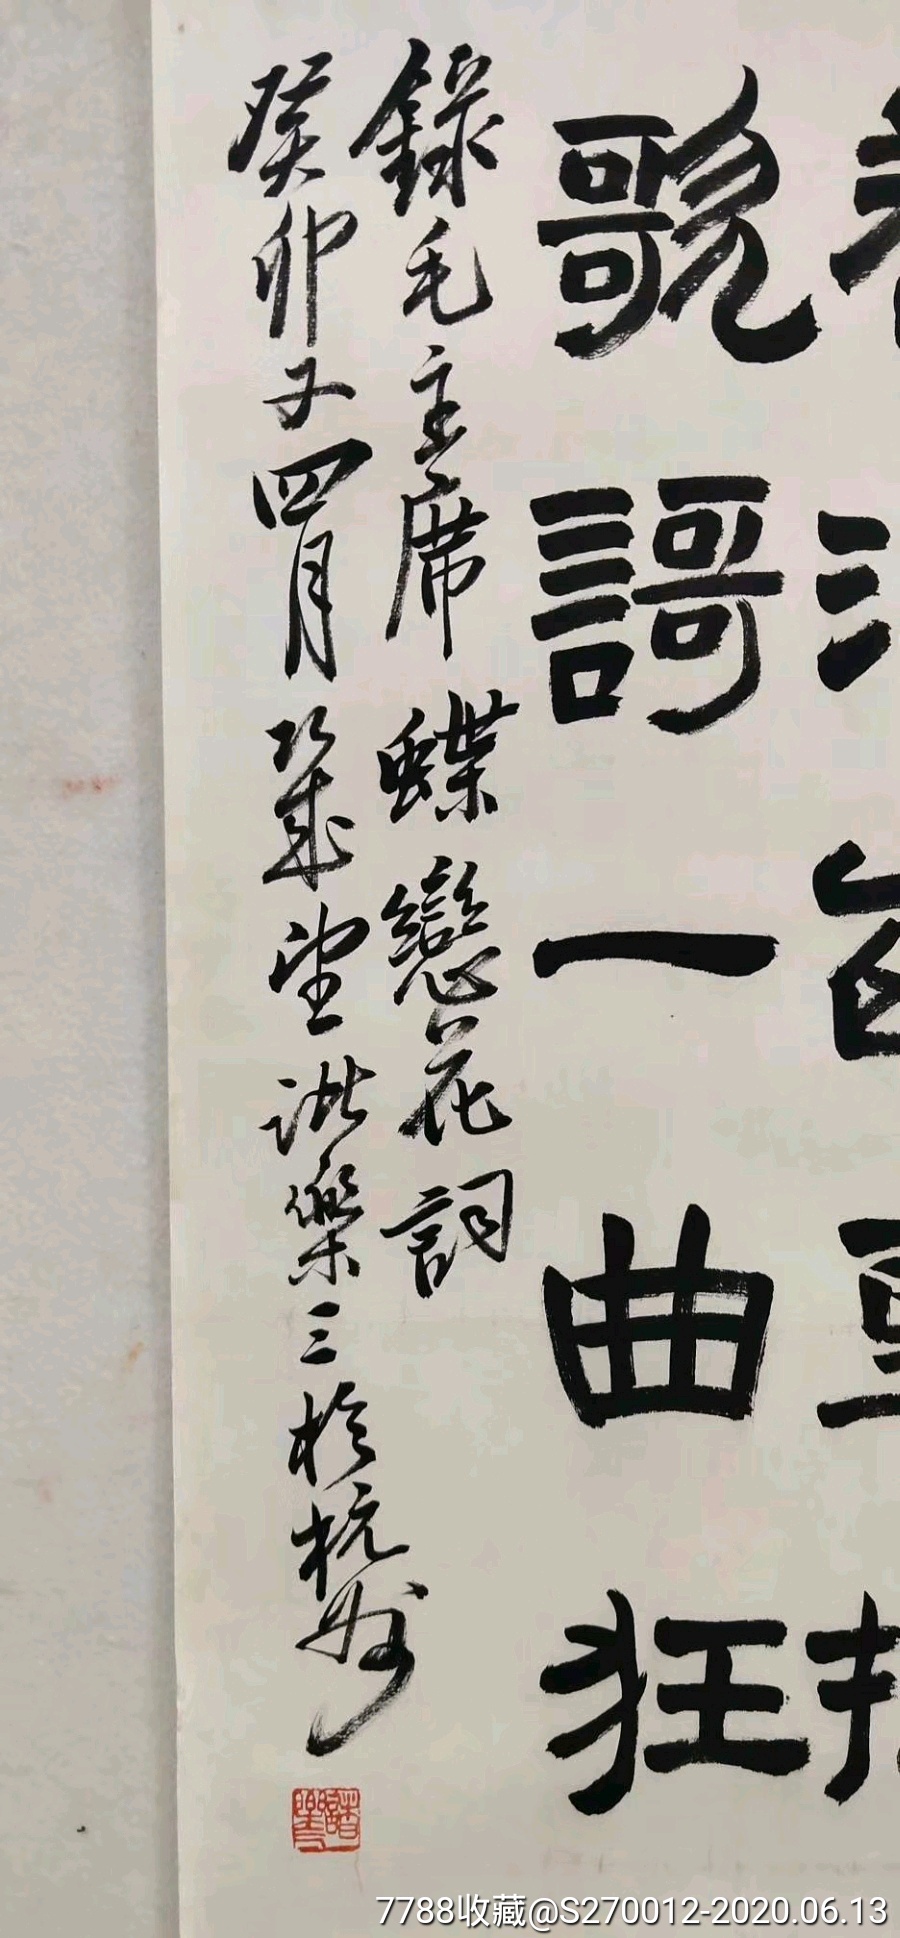 歌謌一曲狂
錄毛主席蝶戀花詞
癸卯又四月幾望諸樂三於杭州
7788收藏@S270012-2020.06.13